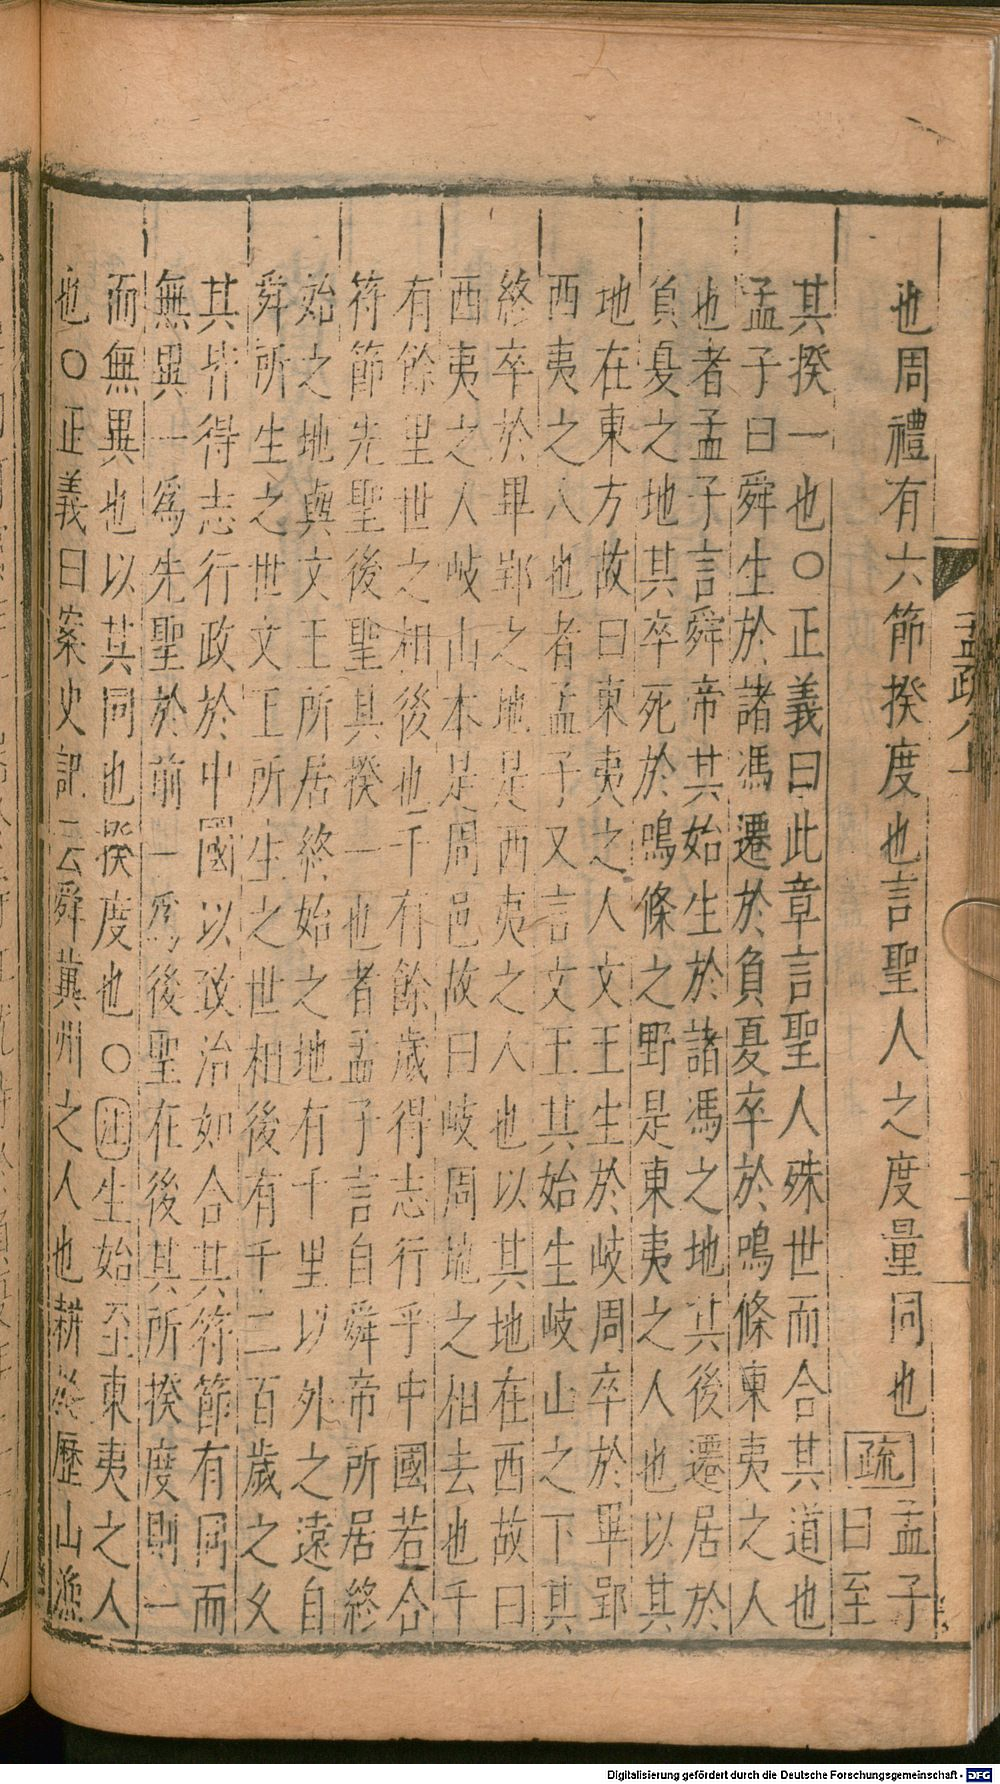 也周禮有六節揆度也言聖人之度量同也疏孟子曰至
其揆一也○正義曰此章言聖人殊世而合其道也
孟子曰舜生於諸馮遷於負夏卒於鳴條東夷之人
也者孟子言舜帝其始生於諸馮之地其後遷居於
負夏之地其卒死於鳴條之野是東夷之人也以其
地在東方故曰東夷之人文王生於岐周卒於畢郢
西夷之人也者孟子又言文王其始生岐山之下其
終卒於畢郢之地是西夷之人也以其地在西故曰
西夷之人岐山本是周邑故曰岐周地之相去也千
有餘里世之相後也千有餘歲得志行乎中國若合
符節先聖後聖其揆一也者孟子言自舜帝所居終
始之地與文王所居終始之地有千里以外之遠自
舜所生之世文王所生之世相後有千二百歲之久
其皆得志行政於中國以致治如合其符節有同而
無異一爲先聖於前一爲後聖在後其所揆度則一
而無異也以其同也揆度也○注生始至東夷之人
也○正義曰案史記云舜冀州之人也耕於歷山漁
Digitalisierung gefördert durch die Deutsche Forschungsgemeinschaft - DFG